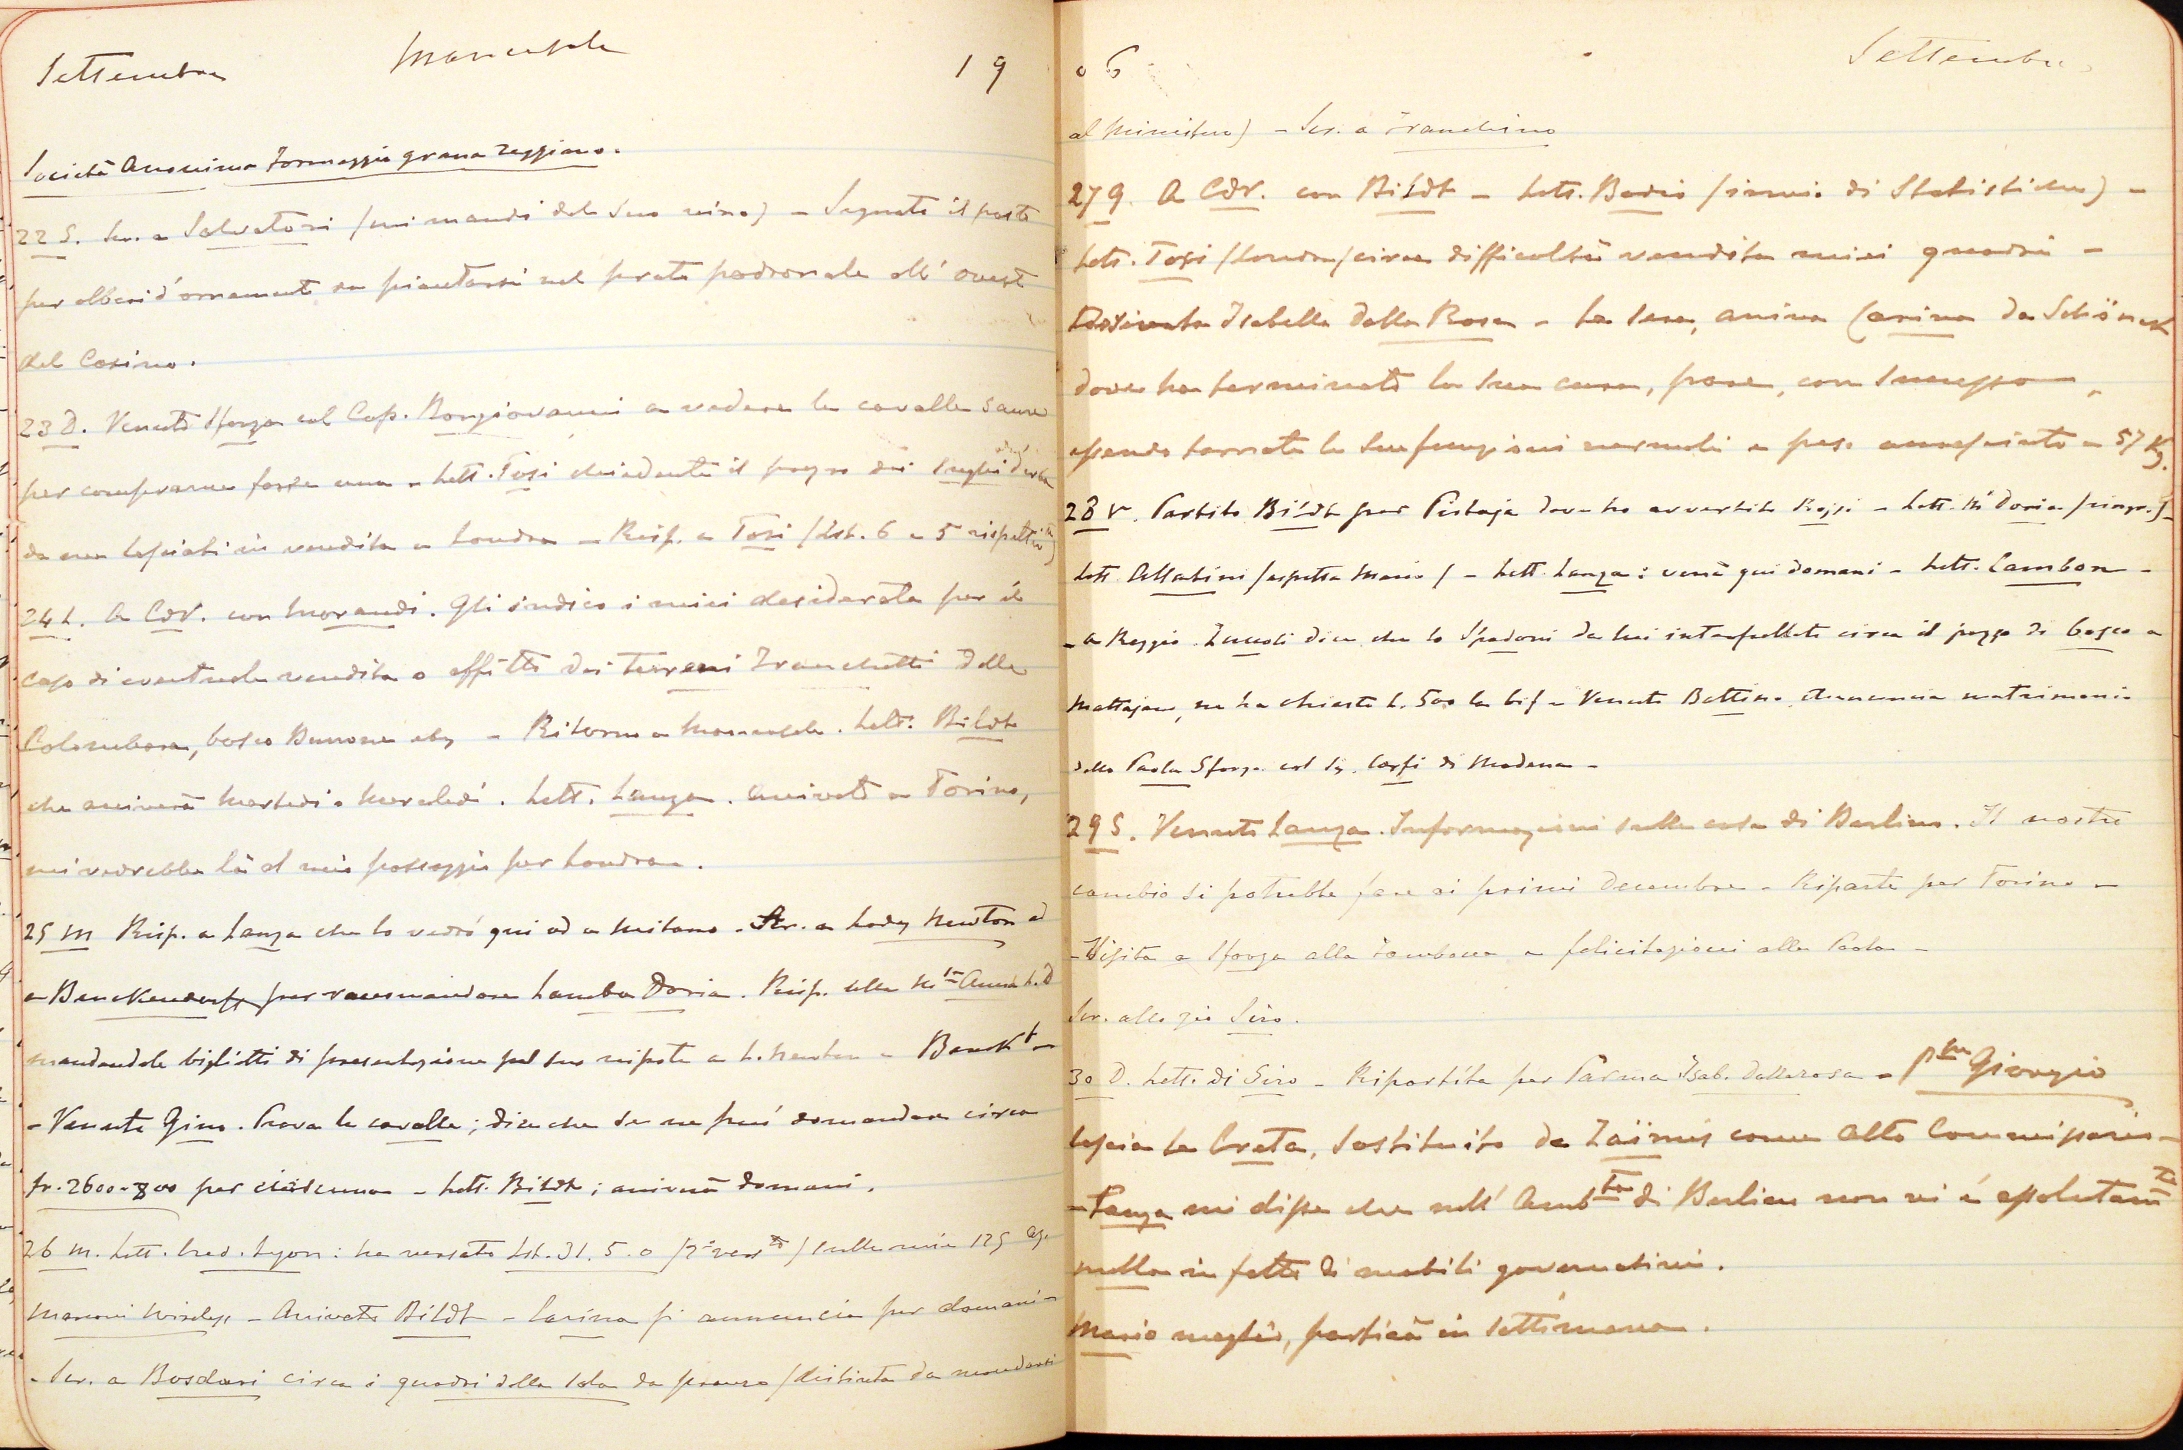 Settembre Mancasale 19
Società Anonima Formaggio grana reggiano.
22 S. Scr. a Salvatori (mi mandi del suo vino) – Segnato il posto
per alberi d'ornamento da piantarsi nel prato padronale all'ovest
del Casino.
23 D. Venuto Sforza col Cap. Bongiovanni a vedere le cavalle saure
per comprarne forse una – Lett. Tosi chiedente il prezzo dei
da me lasciati in vendita a Londra – Risp. a Tosi (Lst. 6 e 5
24 L. A CdV. con Morandi. Gli indico i miei desiderata per il
caso di eventuale vendita o affitto dei terreni Franchetti della
Colombara, bosco Burrone – Ritorno a Mancasale. Lett. Bildt
che arriverà Martedì o Mercoledì. Lett. Lanza. Arrivato a Torino,
mi vedrebbe là al mio passaggio per Londra.
25 M Risp. a Lanza che lo vedrò qui od a Milano – Scr. a Lady Newton ed
a Benckendorff per raccomandare Lamba Doria. Risp. alla Anna L. D
mandandole biglietti di presentazione pel suo nipote a L. Newton e
– Venuto Gino. Prova le cavalle; dice che se ne può domandare circa
fr. 2600-800 per ciascuna – Lett. Bildt; arriverà domani.
26 M. Lett. Cred. Lyon: ha versato Lst. 31. 5. 0 sulle mie 125 az.
Marconi Wireless – Arrivato Bildt – Carina si annuncia per domani –
– Scr. a Bosdari circa i quadri della sala da pranzo (distinta da mandarsi
06 Settembre
al Ministero) – Scr. a Franchino
27 G. A CdV. con Bildt – Lett. Bodio (invio di Statistiche) –
Lett. Tosi (Londra) circa difficoltà vendita miei quadri –
Isabella Dalla Rosa – La sera, arriva Carina da Schöneck
dove ha terminato la sua cura, pare, con successo,
essendo tornate le sue funzioni normali e peso a 57 Kg.
28 V. Partito Bildt per Pistoja dove ho avvertito Rossi – Lett. Doria
Lett. Allatini (aspetta Mario) – Lett. Lanza: verrà qui domani – Lett. Cambon –
– a Reggio. Zuccoli dice che lo Spadoni da lui interpellato circa il pezzo di bosco a
ne ha chiesto L. 500 la bif – Venuto Bettino. Annuncia matrimonio
della Paola Sforza col Sig. di Modena –
29 S. Venuto Lanza. Informazioni sulla casa di Berlino. Il nostro
cambio si potrebbe fare ai primi Decembre – Riparte per Torino –
– Visita a Sforza alla e felicitazioni alla Paola –
Scr. allo zio Siro.
30 D. Lett. di Siro – Ripartita per Parma Isab. Dallarosa – Giorgio
lascia la Creta, sostituito da Zaïmis come Alto Commissario –
– Lanza mi disse che nell' Amb.ta di Berlino non vi è
nulla in fatto di mobili governativi.
Mario meglio, partirà in settimana.